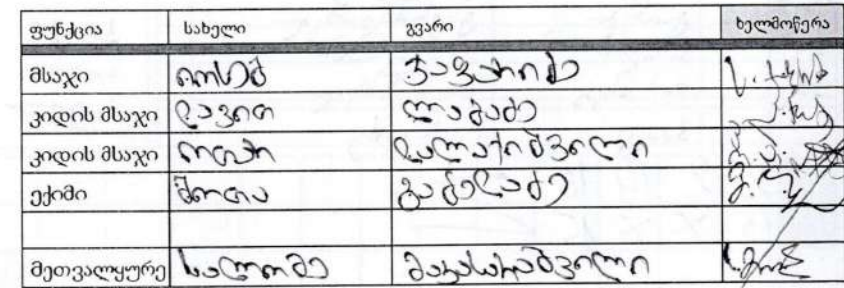 ფუნქცია სახელი გვარი ხელმოწერა
მსაჯი იოსებ ჯაფარიძე
კიდის მსაჯი დავით ლაბაძე
კიდის მსაჯი ოთარ დალაქიშვილი
ექიმი შოთა გაბელაძე
მეთვალყურე სალომე მაისაშვილი